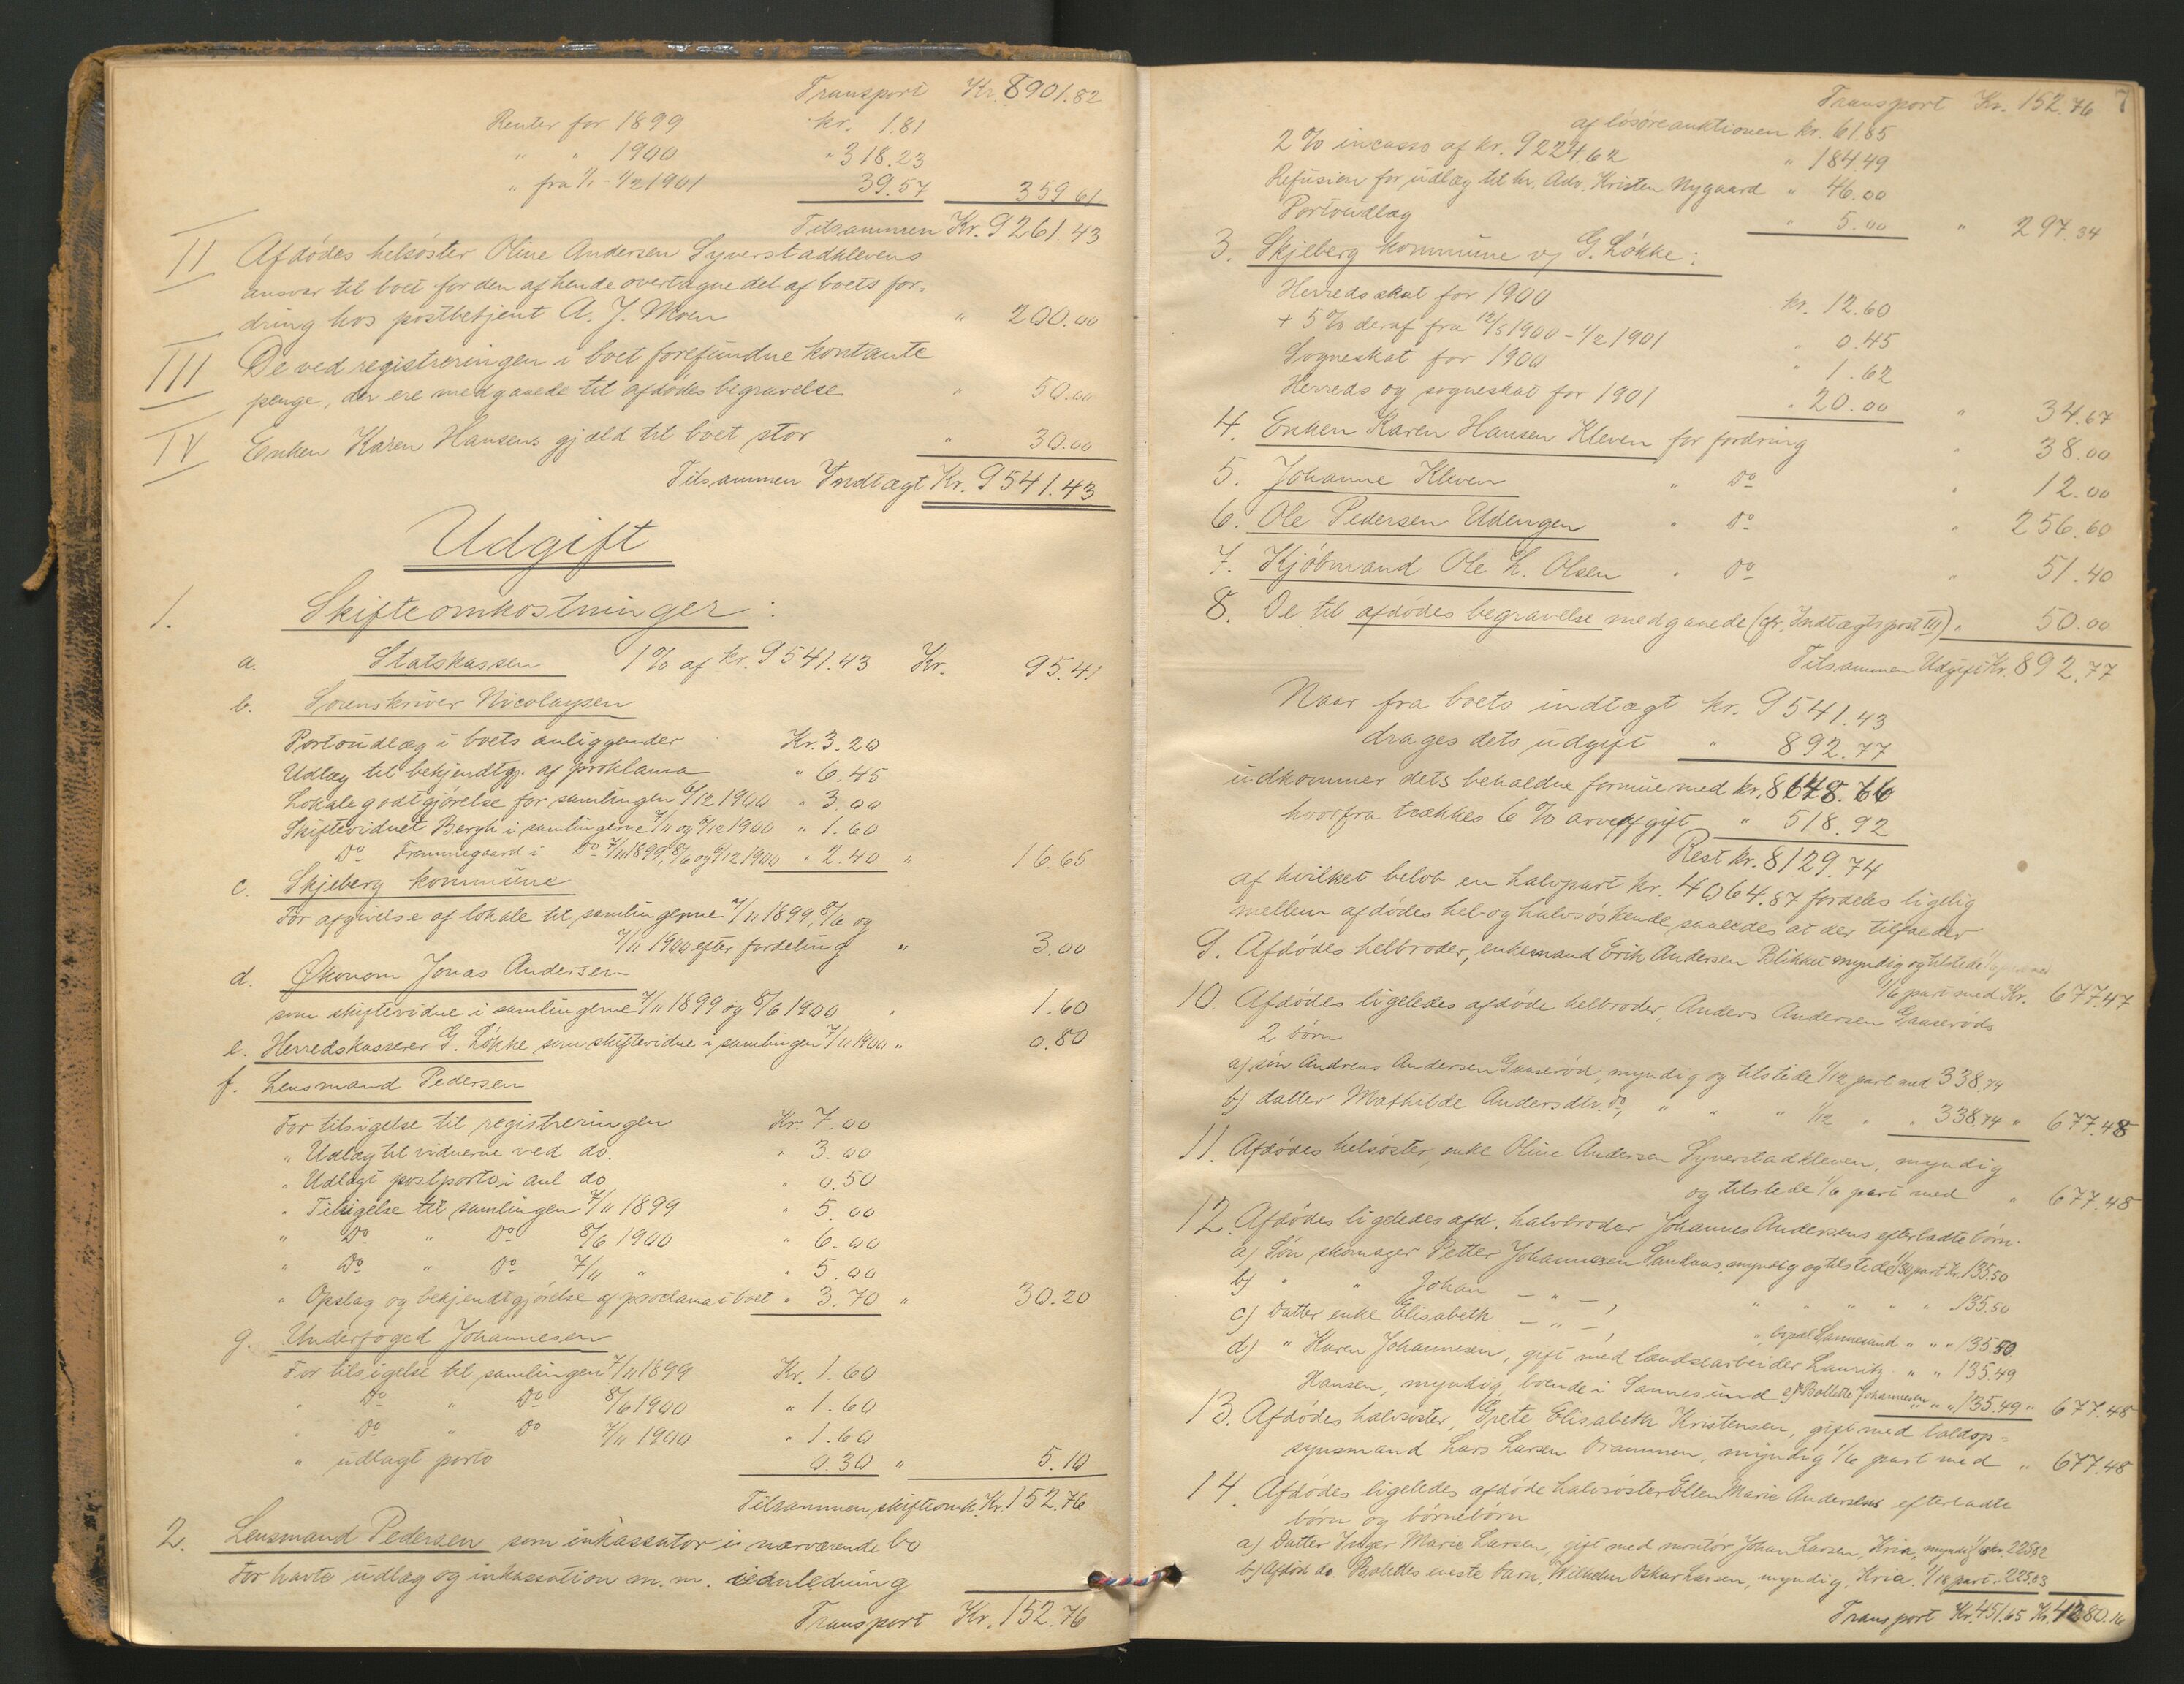 Transport Kr. 8901.82
Renter for 1899 kr. 1.81
" " 1900 " 318.23
" fra 1/1 - 1/2 1901 39.57 359 61
Tilsammen Kr. 9261.43
II Afdødes helsøster Oline Andersen Syverstadklevens
ansvar til boet for den af hende overtagne del af boets for-
dring hos postbetjent A. J. Moen " 200.00
III De ved registreringen i boet forefundne kontante
penge, der ere medgaaede til afdødes begravelse " 50.00
IV Enken Karen Hansens gjæld til boet stor " 30.00
Tilsammen Indtægt Kr. 9541.43
Udgift
1. Skifteomkostninger:
a. Statskassen 1% af kr. 9541.43 Kr. 95.41
b. Sorenskriver Nicolaysen
Portoudlæg i boets anliggender Kr. 3.20
Udlæg til bekjendtgj. af proklama " 6.45
Lokalegodtgjørelse for samlingen 6/12 1900 " 3.00
Skiftevidnet Bergh i samlingerne 7/11 og 6/12 1900 " 1.60
Do Frammegaard i Do 7/11 1899, 8/6 og 6/12 1900 " 2.40 " 16.65
c. Skjeberg kommune
For afgivelse af lokale til samlingerne 7/11 1899, 8/6 og
7/11 1900 efter fordeling " 3.00
d. Økonom Jonas Andersen
som skiftevidne i samlingerne 7/11 1899 og 8/6 1900 " 1.60
e. Herredskasserer G. Løkke som skiftevidne i samlingen 7/11 1900 " 0.80
f. Lensmand Pedersen
For tilsigelse til registreringen Kr. 7.00
" Udlæg til vidnerne ved do. " 3.00
" Udlagt postporto i anl do " 0.50
" Tilsigelse til samlingen 7/11 1899 " 5.00
" Do " Do 8/6 1900 " 6.00
" Do " Do 7/11 " " 5.00
" Opslag og bekjendtgjørelse af proclama i boet " 3.70 " 30.20
g. Underfoged Johannesen
For tilsigelse til samlingen 7/11 1899 Kr. 1.60
" Do " Do 8/6 1900 " 1.60
" Do " Do 7/11 1900 " 1.60
" udlagt porto 0.30 " 5.10
Tilsammen skifteomk. Kr. 152.76
2. Lensmand Pedersen som inkassator i nærværende bo
For havte udlæg og inkassation m.m. i anledning
Transport Kr. 152.76
7
Transport Kr. 152.76
af løsøreauktionen kr. 61.85
2% incasso af kr. 9224.62 " 184.49
Refusion for udlæg til hr. Adv. Kristen Nygaard " 46.00
Portoudlæg " 5.00 " 297.34
3. Skjeberg kommune v/ G. Løkke:
Herredsskat for 1900 kr. 12.60
+ 5% deraf fra 12/5 1900 - 1/2 1901 " 0.45
Sogneskat for 1900 " 1.62
Herreds og sogneskat for 1901 " 20.00 " 34.67
4. Enken Karen Hansen Kleven for fordring " 38.00
5. Johanne Kleven " Do " 12.00
6. Ole Pedersen Udengen " Do " 256.60
7. Kjøbmand Ole L. Olsen " Do " 51.40
8. De til afdødes begravelse medgaaede (cfr. Indtægtspost III) " 50.00
Tilsammen Udgift Kr. 892.77
Naar fra boets indtægt kr. 9541.43
drages dets udgift " 892.77
udkommer dets beholdne formue med kr. 8648.66
hvorfra trækkes 6% arveafgift " 518.92
Rest kr. 8129.74
af hvilket beløb en halvpart kr. 4064.87 fordeles ligelig
mellem afdødes hel- og halvsøskende saaledes at der tilfalder
9. Afdødes helbroder, enkemand Erik Andersen Blikket myndig og tilstede
1/6 part med Kr. 677.47
10. Afdødes ligeledes afdøde helbroder, Anders Andersen Gaaserøds
2 børn
a) søn Andreas Andersen Gaaserød, myndig og tilstede 1/12 part med 338.74
b) datter Mathilde Andersdtr. do, " " " 1/12 " " 338.74 " 677.48
11. Afdødes helsøster, enke Oline Andersen Syverstadkleven, myndig
og tilstede 1/6 part med " 677.48
12. Afdødes ligeledes afd. halvbroder Johannes Andersens efterladte børn.
a) Søn skomager Petter Johannesen Sandaas, myndig og tilstede 1/30 part Kr. 135.50
b) " " Johan — " —, " " " " " " 135.50
c) Datter enke Elisabeth — " —, " bopæl Sannesund " " " 135.50
d) " Karen Johannesen, gift med landsearbeider Lauritz " " 135.49
Hansen, myndig, boende i Sannesund e) Bollette Johannesen " " " 135.49 " 677.48
13. Afdødes halvsøster, Grete Elisabeth Kristensen, gift med toldop=
synsmand Lars Larsen Drammen, myndig 1/6 part med " 677.48
14. Afdødes ligeledes afdøde halvsøster Ellen Marie Andersens efterladte
børn og børnebørn
a) Datter Inger Marie Larsen, gift med montør Johan Larsen, Kria, myndig 225.82
b) Afdød do. Bolettes eneste barn, Wilhelm Oskar Larsen, myndig, Kria. 1/18 part " 225.83
Transport Kr. 451.65 Kr. 4280.16